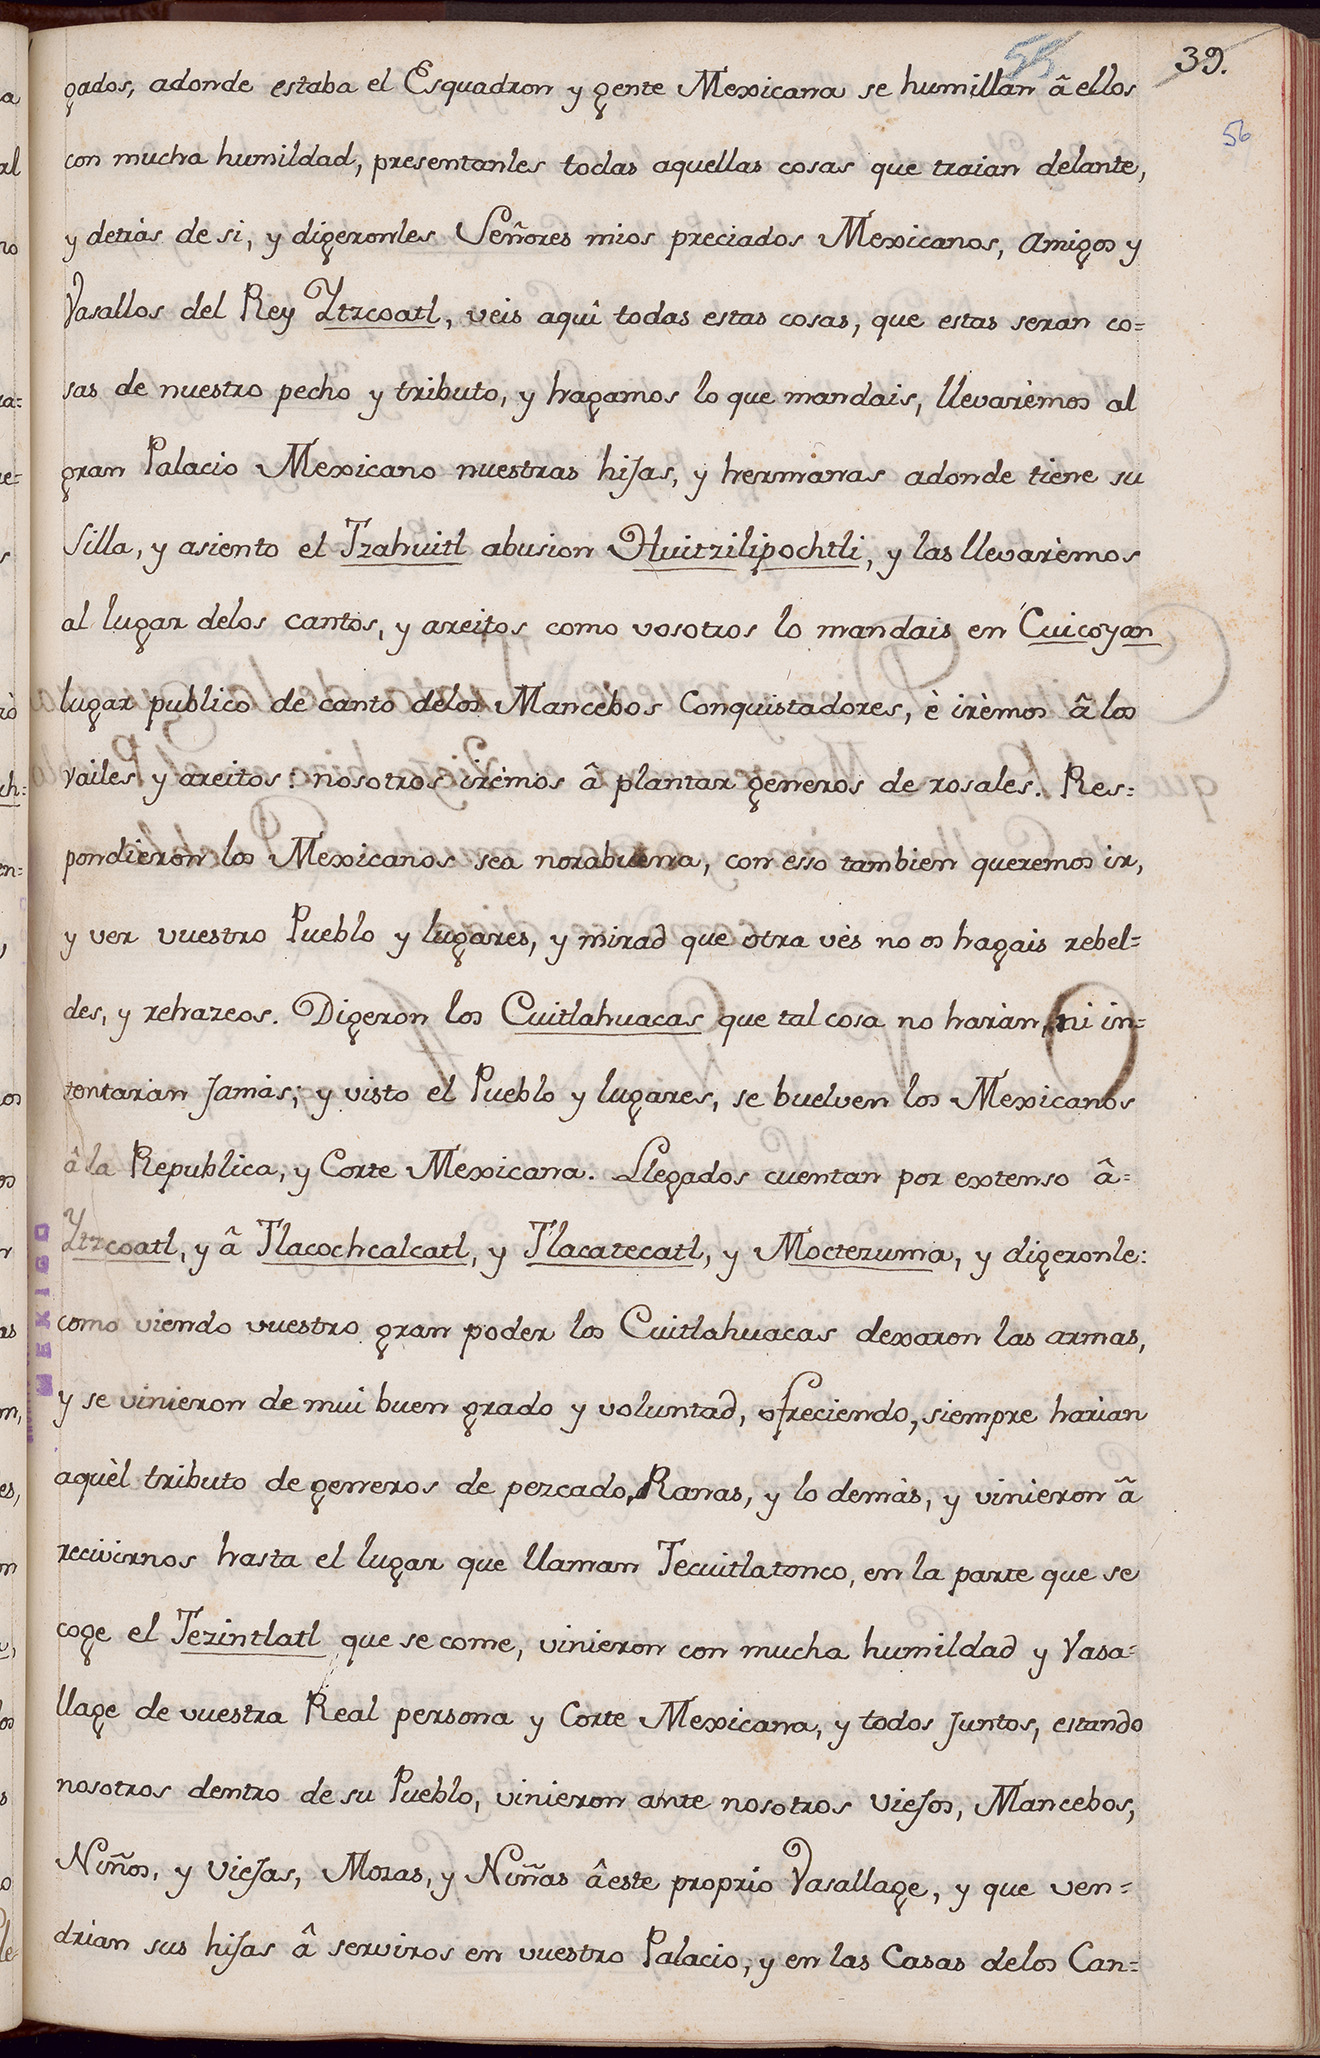 55
39.
56
gados, adonde estaba el Esquadron y gente Mexicana se humillan â ellos
con mucha humildad, presentanles todas aquellas cosas que traian delante,
y detràs de si, y digeronles Señores mios preciados Mexicanos, amigos y
Vasallos del Rey Ytzcoatl, veis aquî todas estas cosas, que estas seran co=
sas de nuestro pecho y tributo, y hagamos lo que mandais, llevarèmos al
gran Palacio Mexicano nuestras hiJas, y hermanas adonde tiene su
Silla, y asiento el Tzahuitl abusion Huitzilipochtli, y las llevarèmos
al lugar delos cantos, y areitos como vosotros lo mandais en Cuicoyan
lugar publico de canto delos Mancebos Conquistadores, è irèmos â los
vailes y areitos: nosotros irèmos â plantar generos de rosales. Res=
pondieron los Mexicanos sea norabuena, con esso tambien queremos ir,
y ver vuestro Pueblo y lugares, y mirad que otra vès no os hagais rebel=
des, y rehazeos. Digeron los Cuitlahuacas que tal cosa no harian, ni in=
tentarian Jamàs; y visto el Pueblo y lugares, se buelven los Mexicanos
â la Republica, y Corte Mexicana. Llegados cuentan por extenso â=
Ytzcoatl, y â Tlacochcalcatl, y Tlacatecatl, y Moctezuma, y digeronle:
como viendo vuestro gran poder los Cuitlahuacas dexaron las armas,
y se vinieron de mui buen grado y voluntad, ofreciendo, siempre harian
aquèl tributo de generos de pezcado, Ranas, y lo demàs, y vinieron â
recivirnos hasta el lugar que llaman Tecuitlatonco, en la parte que se
coge el Tezintlatl que se come, vinieron con mucha humildad y Vasa=
llage de vuestra Real persona y Corte Mexicana, y todos Juntos, estando
nosotros dentro de su Pueblo, vinieron ante nosotros vieJos, Mancebos,
Niños, y vieJas, Mozas, y Niñas â este proprio Vasallage, y que ven=
drian sus hiJas â serviros en vuestro Palacio, y en las Casas delos Can=
MEXICO